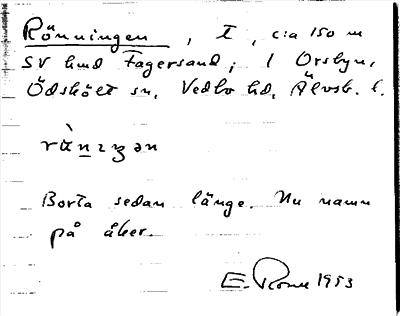 Rönningen, T, c:a 150 m
SV hmd Fagersand; i Orsbyn,
Ödskölt sn, Vedbo hd, Älvsb. l.
Borta sedan länge. Nu namn
på åker.
E. 1953